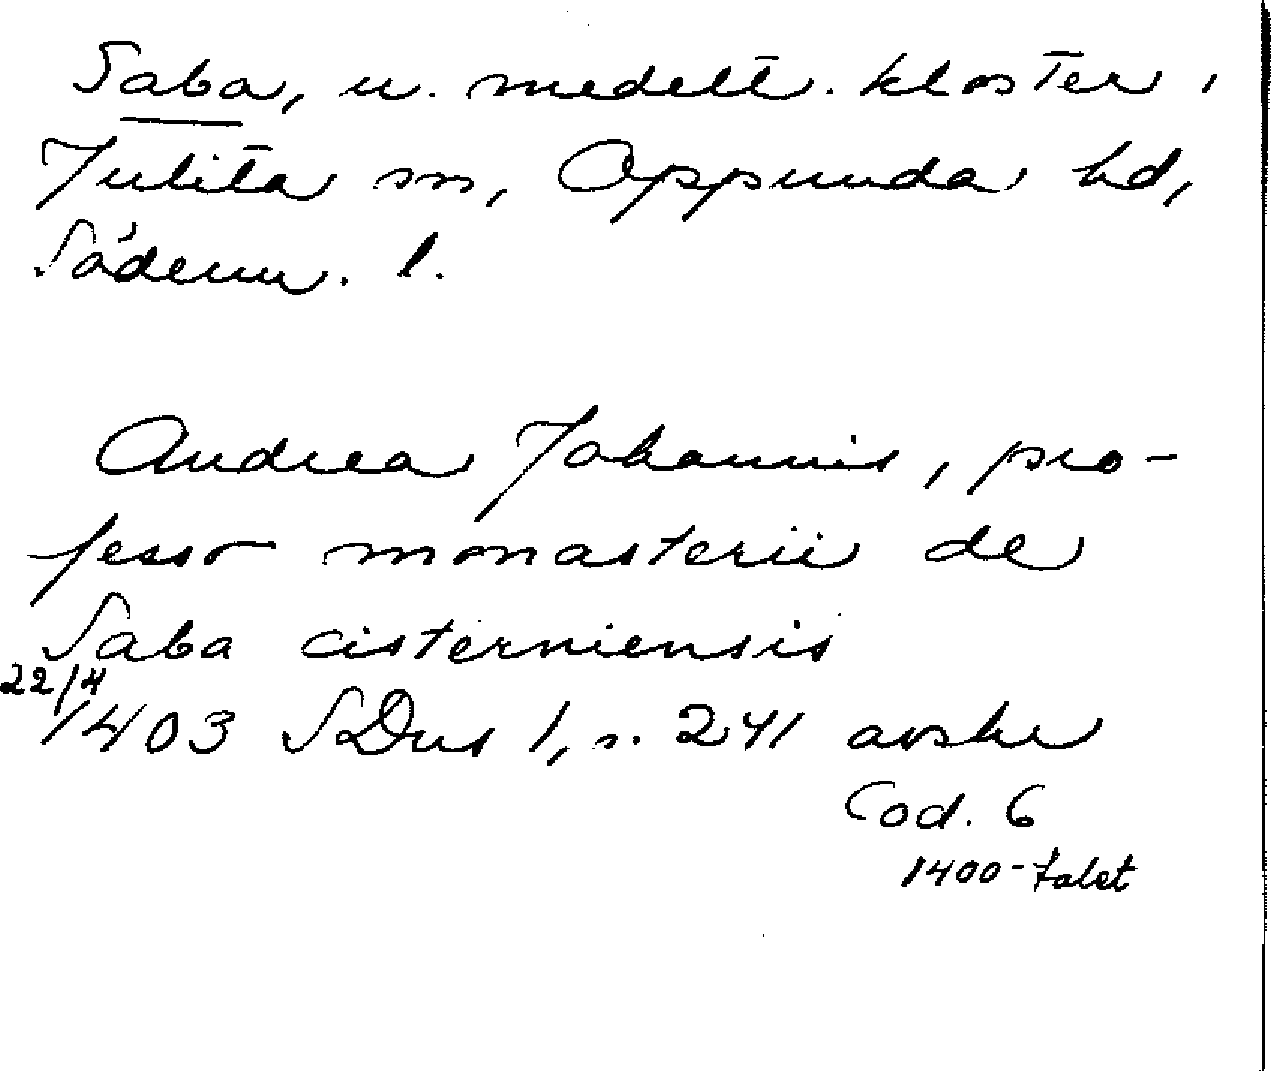 Saba, u. medelt. kloster i
Julita sn, Oppunda hd,
Söderm. l.
Andrea Johannis, pro-
fesso monasterii de
Saba cisterniensis
22/4
1403 SDns 1, s. 241 avskr
Cod. 6
1400-talet